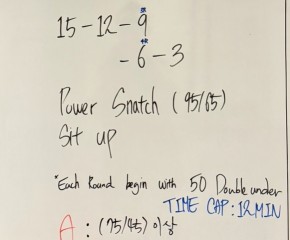 15-12-9
-6-3
Power Snatch (95/65)
Sit up
*Each Round begin with 50 Double under
TIME CAP:12MIN
A:(75/45)이상